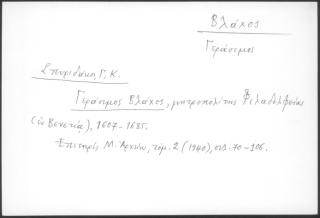 Βλάχος
Γεράσιμος
Σπυριδάκη, Γ. Κ.
Γεράσιμος Βλάχος, μητροπολίτης Φιλαδελφείας
(ἐν Βενετίᾳ), 1607-1685.
Ἐπετηρὶς Μ. Ἀρχείου, τόμ. 2 (1940), σελ. 70-106.